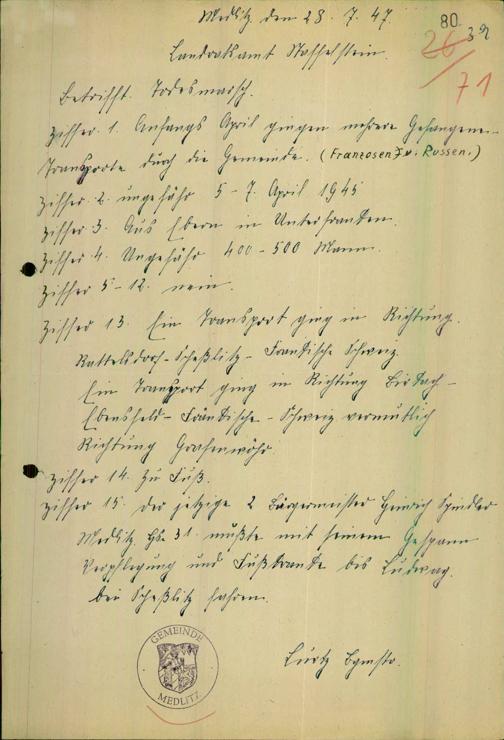 80
39
26
71
Medlitz, den 28. 7. 47.
Landratsamt Staffelstein.
Betrifft. Todesmarsch.
Ziffer. 1. Anfangs April gingen mehrere Gefangenen-
Transporte durch die Gemeinde. (Franzosen u. Russen.)
Ziffer 2. ungefähr 5-7. April 1945
Ziffer 3. Aus Ebern in Unterfranken.
Ziffer 4. Ungefähr 400-500 Mann.
Ziffer 5-12. nein.
Ziffer 13. Ein Transport ging in Richtung.
Rattelsdorf-Scheßlitz-Fränkische Schweiz.
Ein Transport ging in Richtung Birkach-
Ebensfeld-Fränkische-Schweiz vermutlich
Richtung Grafenwöhr.
Ziffer 14. Zu Fuß.
Ziffer 15. Der jetzige 2 Bürgermeister Heinrich Spindler
Medlitz Hs. 31 mußte mit seinem Gespann
Verpflegung und Fußkranke bis Ludwag.
bei Scheßlitz fahren.
GEMEINDE
MEDLITZ
Bgmstr.